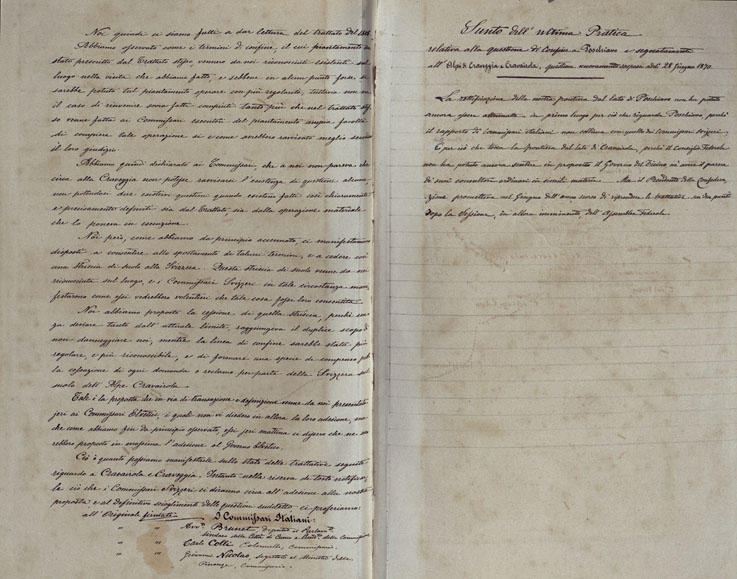 Noi quindi ci siamo fatti a dar lettura del trattato del
Abbiamo osservato come i termini di confine, il cui piantamento era
stato prescritto dal Trattato stesso, vennero da noi riconosciuti esistenti sul
luogo nella visita che abbiamo fatta, e sebbene in alcun punto forse si
sarebbe potuto tal piantamento operare con più regolarità, tuttavia non era
il caso di rinvenire sovra fatti compiuti tanto più che nel trattato
se venne fatta ai Commissari esecutori del piantamento ampia facoltà
di compiere tale operazione si e come avrebbero ravvisato meglio secondo
il loro giudizio.
Abbiamo quindi dichiarato ai Commissari, che a noi non pareva che
circa alla Craveggia non potesse ravvisarsi l'esistenza di questione alcuna,
non potendosi dire esistervi questioni quando esistono fatti così chiaramente
e precisamente definiti sia dal Trattato, sia dalla operazione materiale
che lo poneva in esecuzione.
Noi però, come abbiamo da principio accennato, ci manifestammo
disposti a consentire allo spostamento di taluni termini, e a cedere così
una striscia di suolo alla Svizzera. Questa striscia di suolo venne da noi
riconosciuta sul luogo, e i Commissari Svizzeri in tale circostanza mani
festarono come essi vedrebbero volentieri che tale cosa fosse loro consentita.
Noi abbiamo proposto la cessione di quella striscia, perchè sen
za deviare tanto dall'attuale limite, raggiungeva il duplice scopo di
non danneggiare noi, mentre la linea di confine sarebbe stata più
regolare, e più riconoscibile, e di formare una specie di compenso per
la cessazione di ogni domanda o reclamo per parte della Svizzera sul
suolo dell'Alpe Cravairola.
Tale è la proposta che in via di transazione e definizione venne da noi presentata
jeri ai Commissari Elvetici, i quali non vi diedero in allora la loro adesione, ma
che come abbiamo fin da principio osservato, essi jeri mattina ci dissero che ne sa
rebbero proposto in massima l'adesione al Governo Elvetico.
Ciò è quanto possiamo manifestarle sullo stato delle trattative seguite
riguardo a Cravairola e Craveggia. Intanto nella riserva di tosto notifica
le ciò che i Commissari Svizzeri ci diranno circa all'adesione alla nostra
proposta e al definitivo scioglimento delle questioni suddette ci professiamo
all'Originale firmato I Commissari Italiani:
" " Avv.º Brunet, Deputato al Parlam.to
Sindaco della Città di Cuneo e della Commissione
" " Carlo Colli Colonnello, Commissario.
" " Giovanni Nicolao, Segretario al Ministero delle
Finanze, Commissario.
Sunto dell'ultima Pratica
relativa alla questione di confine a Poschiavo e segnatamente
all'Alpi di Craveggia e Cravairola, quistione nuovamente sospesa addì 28 Giugno 1870.
La rettificazione della nostra frontiera dal lato di Poschiavo non ha potuto
ancora essere ultimata. in primo luogo per ciò che riguarda Poschiavo perchè
il rapporto di comissari italiani non collima con quello di comissari svizzeri.
E per ciò che tocca la frontiera dal lato di Cravairola, perchè il Consiglio Federale
non ha potuto ancora sentire in proposito il Governo del Ticino nè avere il parere
de' suoi consultori ordinari in simili materie. Ma il Presidente della Confedera
zione prometteva nel Giugno dell'anno scorso di riprendere le trattative su due punti
dopo la sessione, in allora imminente, dell'Assemblea Federale.